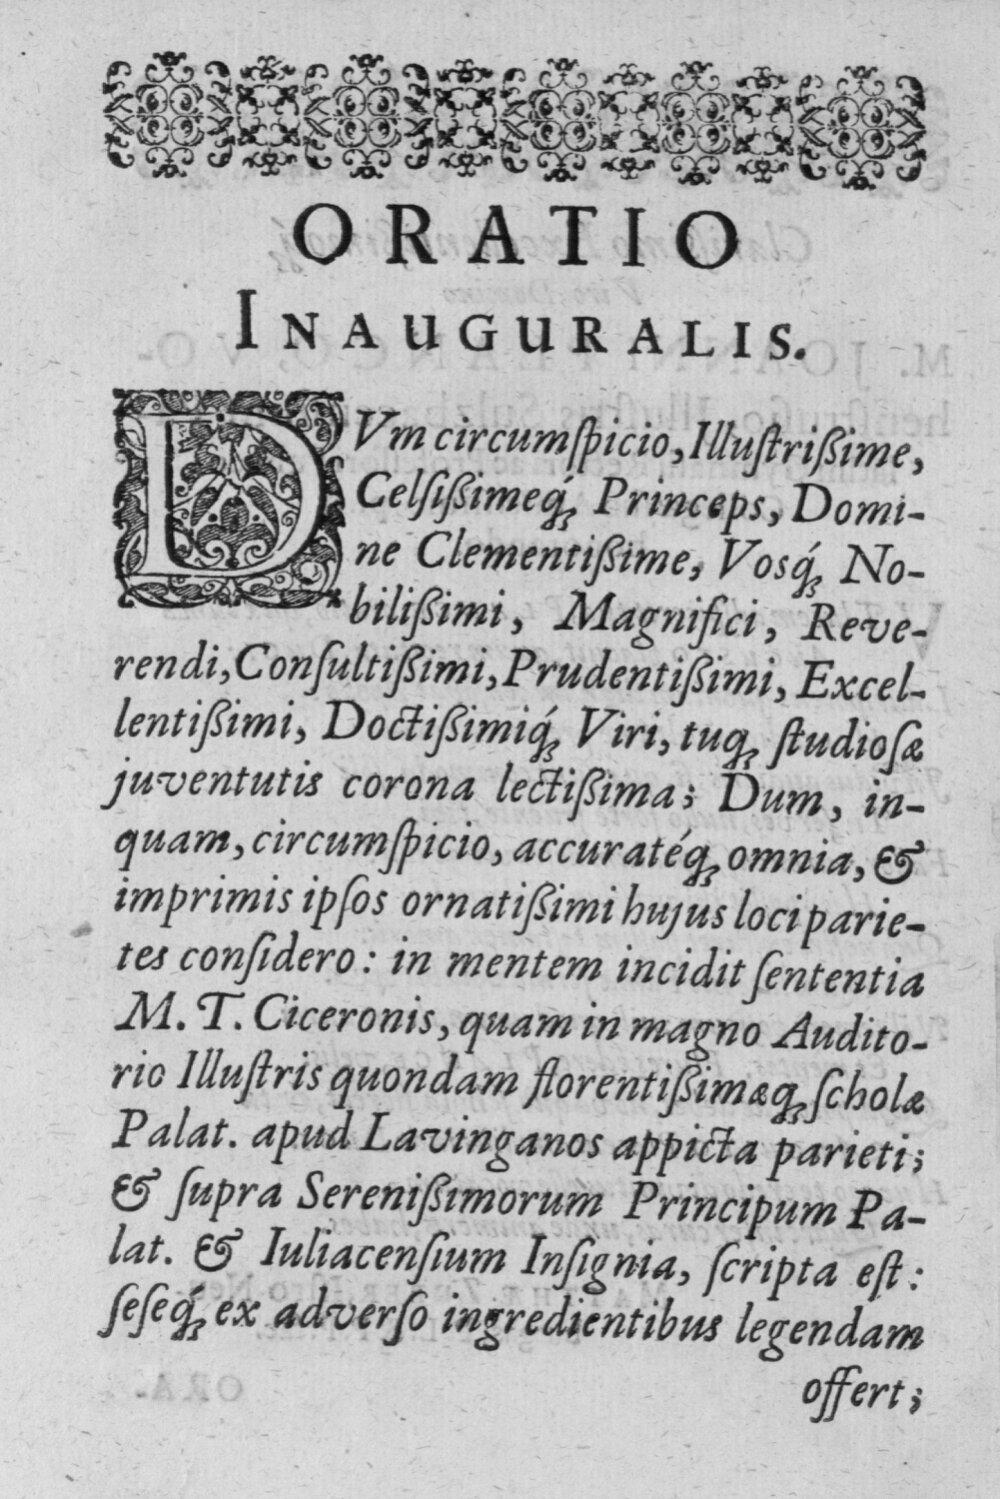 ORATIO
INAUGURALIS.
DVm circumſpicio, Illuſtrißime,
Celſißimeq́ꝫ Princeps, Domi-
ne Clementißime, Vosq́ꝫ No-
bilißimi, Magnifici, Reve-
rendi, Conſultißimi, Prudentißimi, Excel-
lentißimi, Doctißimiq́ꝫ Viri, tuqꝫ ſtudioſæ
juventutis corona lectißima; Dum, in-
quam, circumſpicio, accuratéqꝫ omnia, &
imprimis ipſos ornatißimi hujus loci parie-
tes conſidero: in mentem incidit ſententia
M. T. Ciceronis, quam in magno Audito-
rio Illuſtris quondam florentißimæqꝫ ſcholæ
Palat. apud Lavinganos appicta parieti;
& ſupra Serenißimorum Principum Pa-
lat. & Iuliacenſium Inſignia, ſcripta eſt:
ſeſeq́ꝫ ex adverſo ingredientibus legendam
offert;